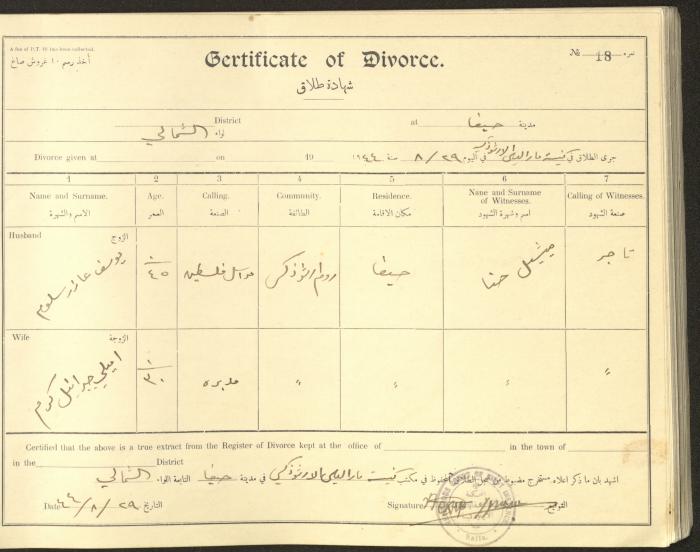 A fee of P.T. 10 has been collected.
أخذ رسم ١٠ غروش صاغ
Certificate of Divorce.
شهادة طلاق
№ 18 نمره
District لواء الشمالي
at مدينة حيفا
Divorce given at on 19
جرى الطلاق في كنيسة مار الياس الارثوذكسي في اليوم ٢٩/٨ سنة ١٩٤٤
1 2 3 4 5 6 7
Name and Surname. Age. Calling. Community. Residence. Name and Surname of Witnesses. Calling of Witnesses.
الاسم والشهرة العمر الصنعة الطائفة مكان الاقامة اسم وشهرة الشهود صنعة الشهود
Husband الزوج
يوسف سلوم ٤٥ فلسطين روم ارثوذكس حيفا ميشيل حنا تاجر
Wife الزوجة
اميلي جبرائيل كرم ٣٠ مديره " " " "
Certified that the above is a true extract from the Register of Divorce kept at the office of in the town of
in the District
اشهد بان ما ذكر اعلاه مستخرج مضبوط من سجل الطلاق المحفوظ في مكتب كنيسة مار الياس الارثوذكسي في مدينة حيفا التابعة اللواء الشمالي
Date ٢٩/٨/٤٤ التاريخ
Signature التوقيع
Haifa.